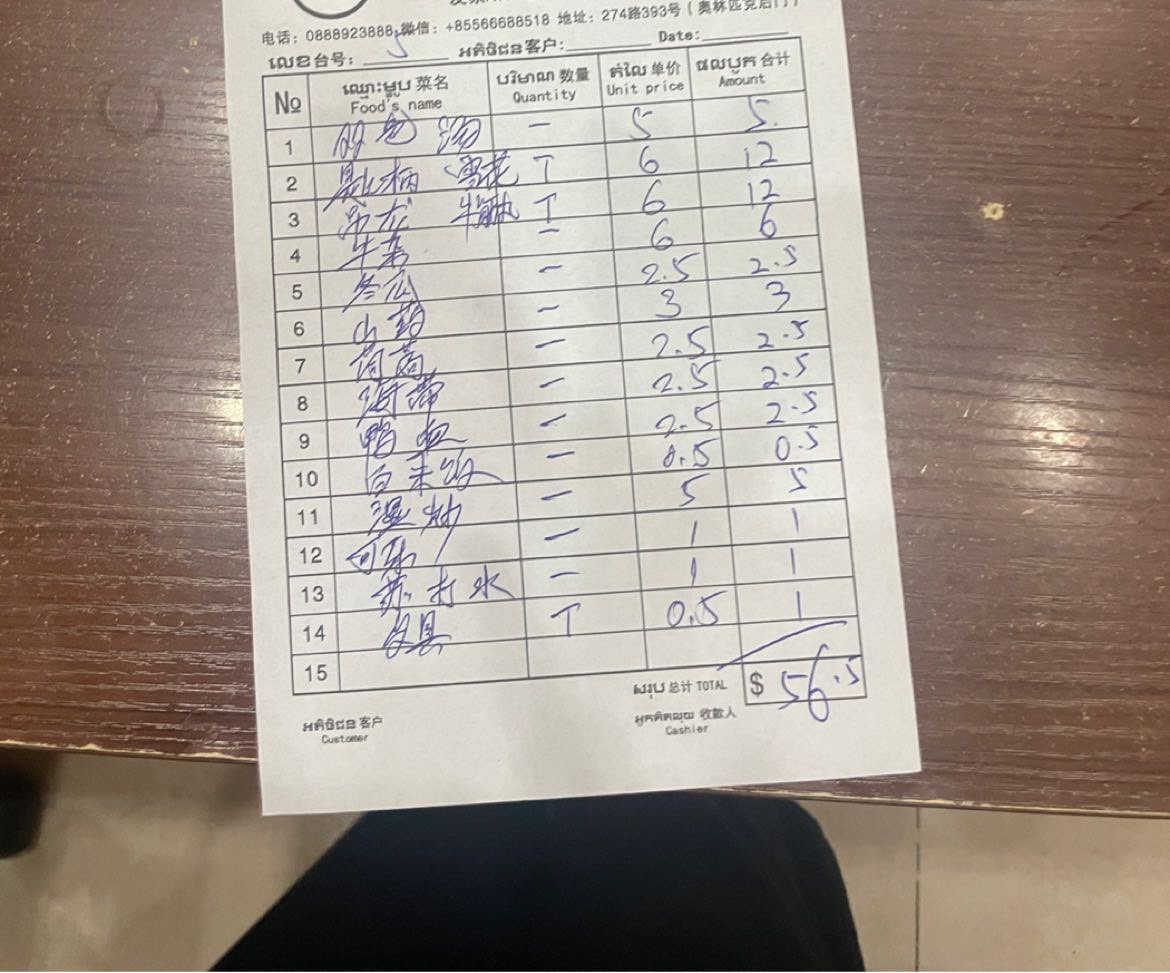 电话：0888923888 微信：+85566688518 地址：274路393号（奥林匹克后门）
លេខ台号： 5 អតិថិជន客户： Date:
No ឈ្មោះម្ហូប 菜名 Food's name បរិមាណ 数量 Quantity តំលៃ 单价 Unit price ផលបូក 合计 Amount
1 汤 一 5 5.
2 匙柄 雪花 T 6 12
3 吊龙 牛腩 T 6 12
4 牛杂 一 6 6
5 冬瓜 一 2.5 2.5
6 山药 一 3 3
7 茼蒿 一 2.5 2.5
8 海带 一 2.5 2.5
9 鸭血 一 2.5 2.5
10 白米饭 一 0.5 0.5
11 湿炒 一 5 5
12 可乐 一 1 1
13 苏打水 一 1 1
14 T 0.5 1
15
សរុប 总计 TOTAL $ 56.5
អតិថិជន 客户 Customer
អ្នកគិតលុយ 收款人 Cashier